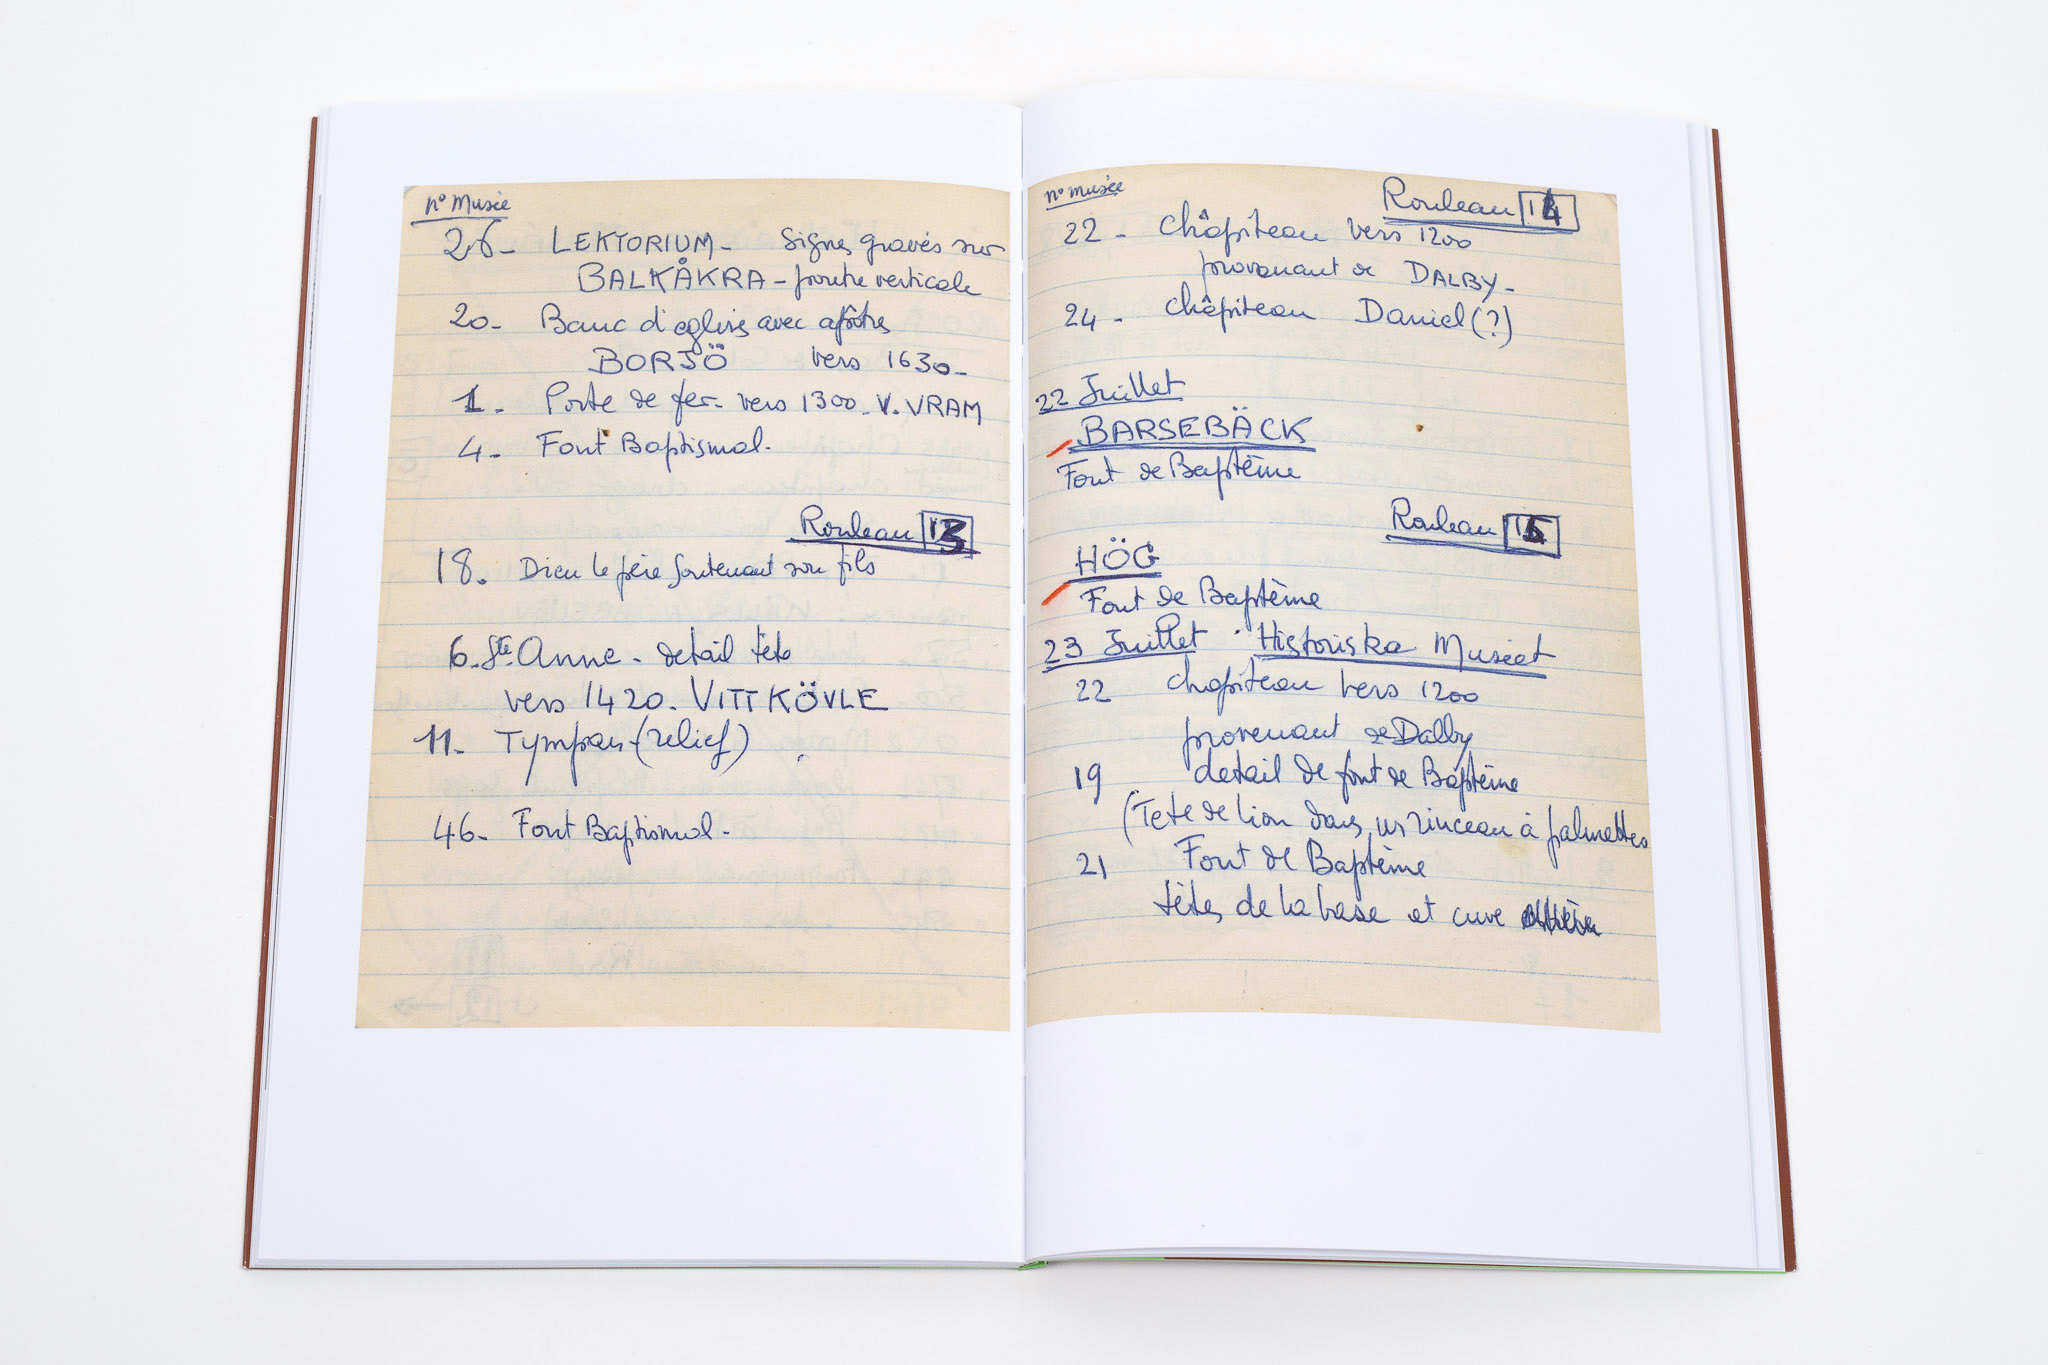 n° Musée
26- LEKTORIUM- Signes gravés sur
BALKÅKRA - poutre verticale
20- Banc d'eglise avec apôtres
BORJÖ vers 1630-
1- Porte de fer- vers 1300. V. VRAM
4- Font Baptismal.
Rouleau 13
18. Dieu le père soutenant son fils
6. Ste Anne - detail tête
vers 1420. VITTKÖVLE
11- Tympan (relief)
46- Font Baptismal-
n° musée
Rouleau 14
22- châpiteau vers 1200
provenant de DALBY-
24- châpiteau Daniel (?)
22 Juillet
BARSEBÄCK
Font de Baptême
Rouleau 15
HÖG
Font de Baptème
23 Juillet . Historiska Museet
22 chapiteau vers 1200
provenant de Dalby
19 detail de font de Baptême
(Tete de lion dans un rinceau à palmettes
21 Font de Baptême
têtes de la base et cuve